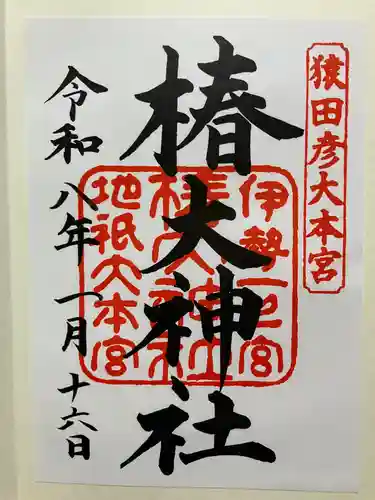 猿田彦大本宮
椿大神社
伊勢一之宮
椿大神社
地祇大本宮
令和八年一月十六日